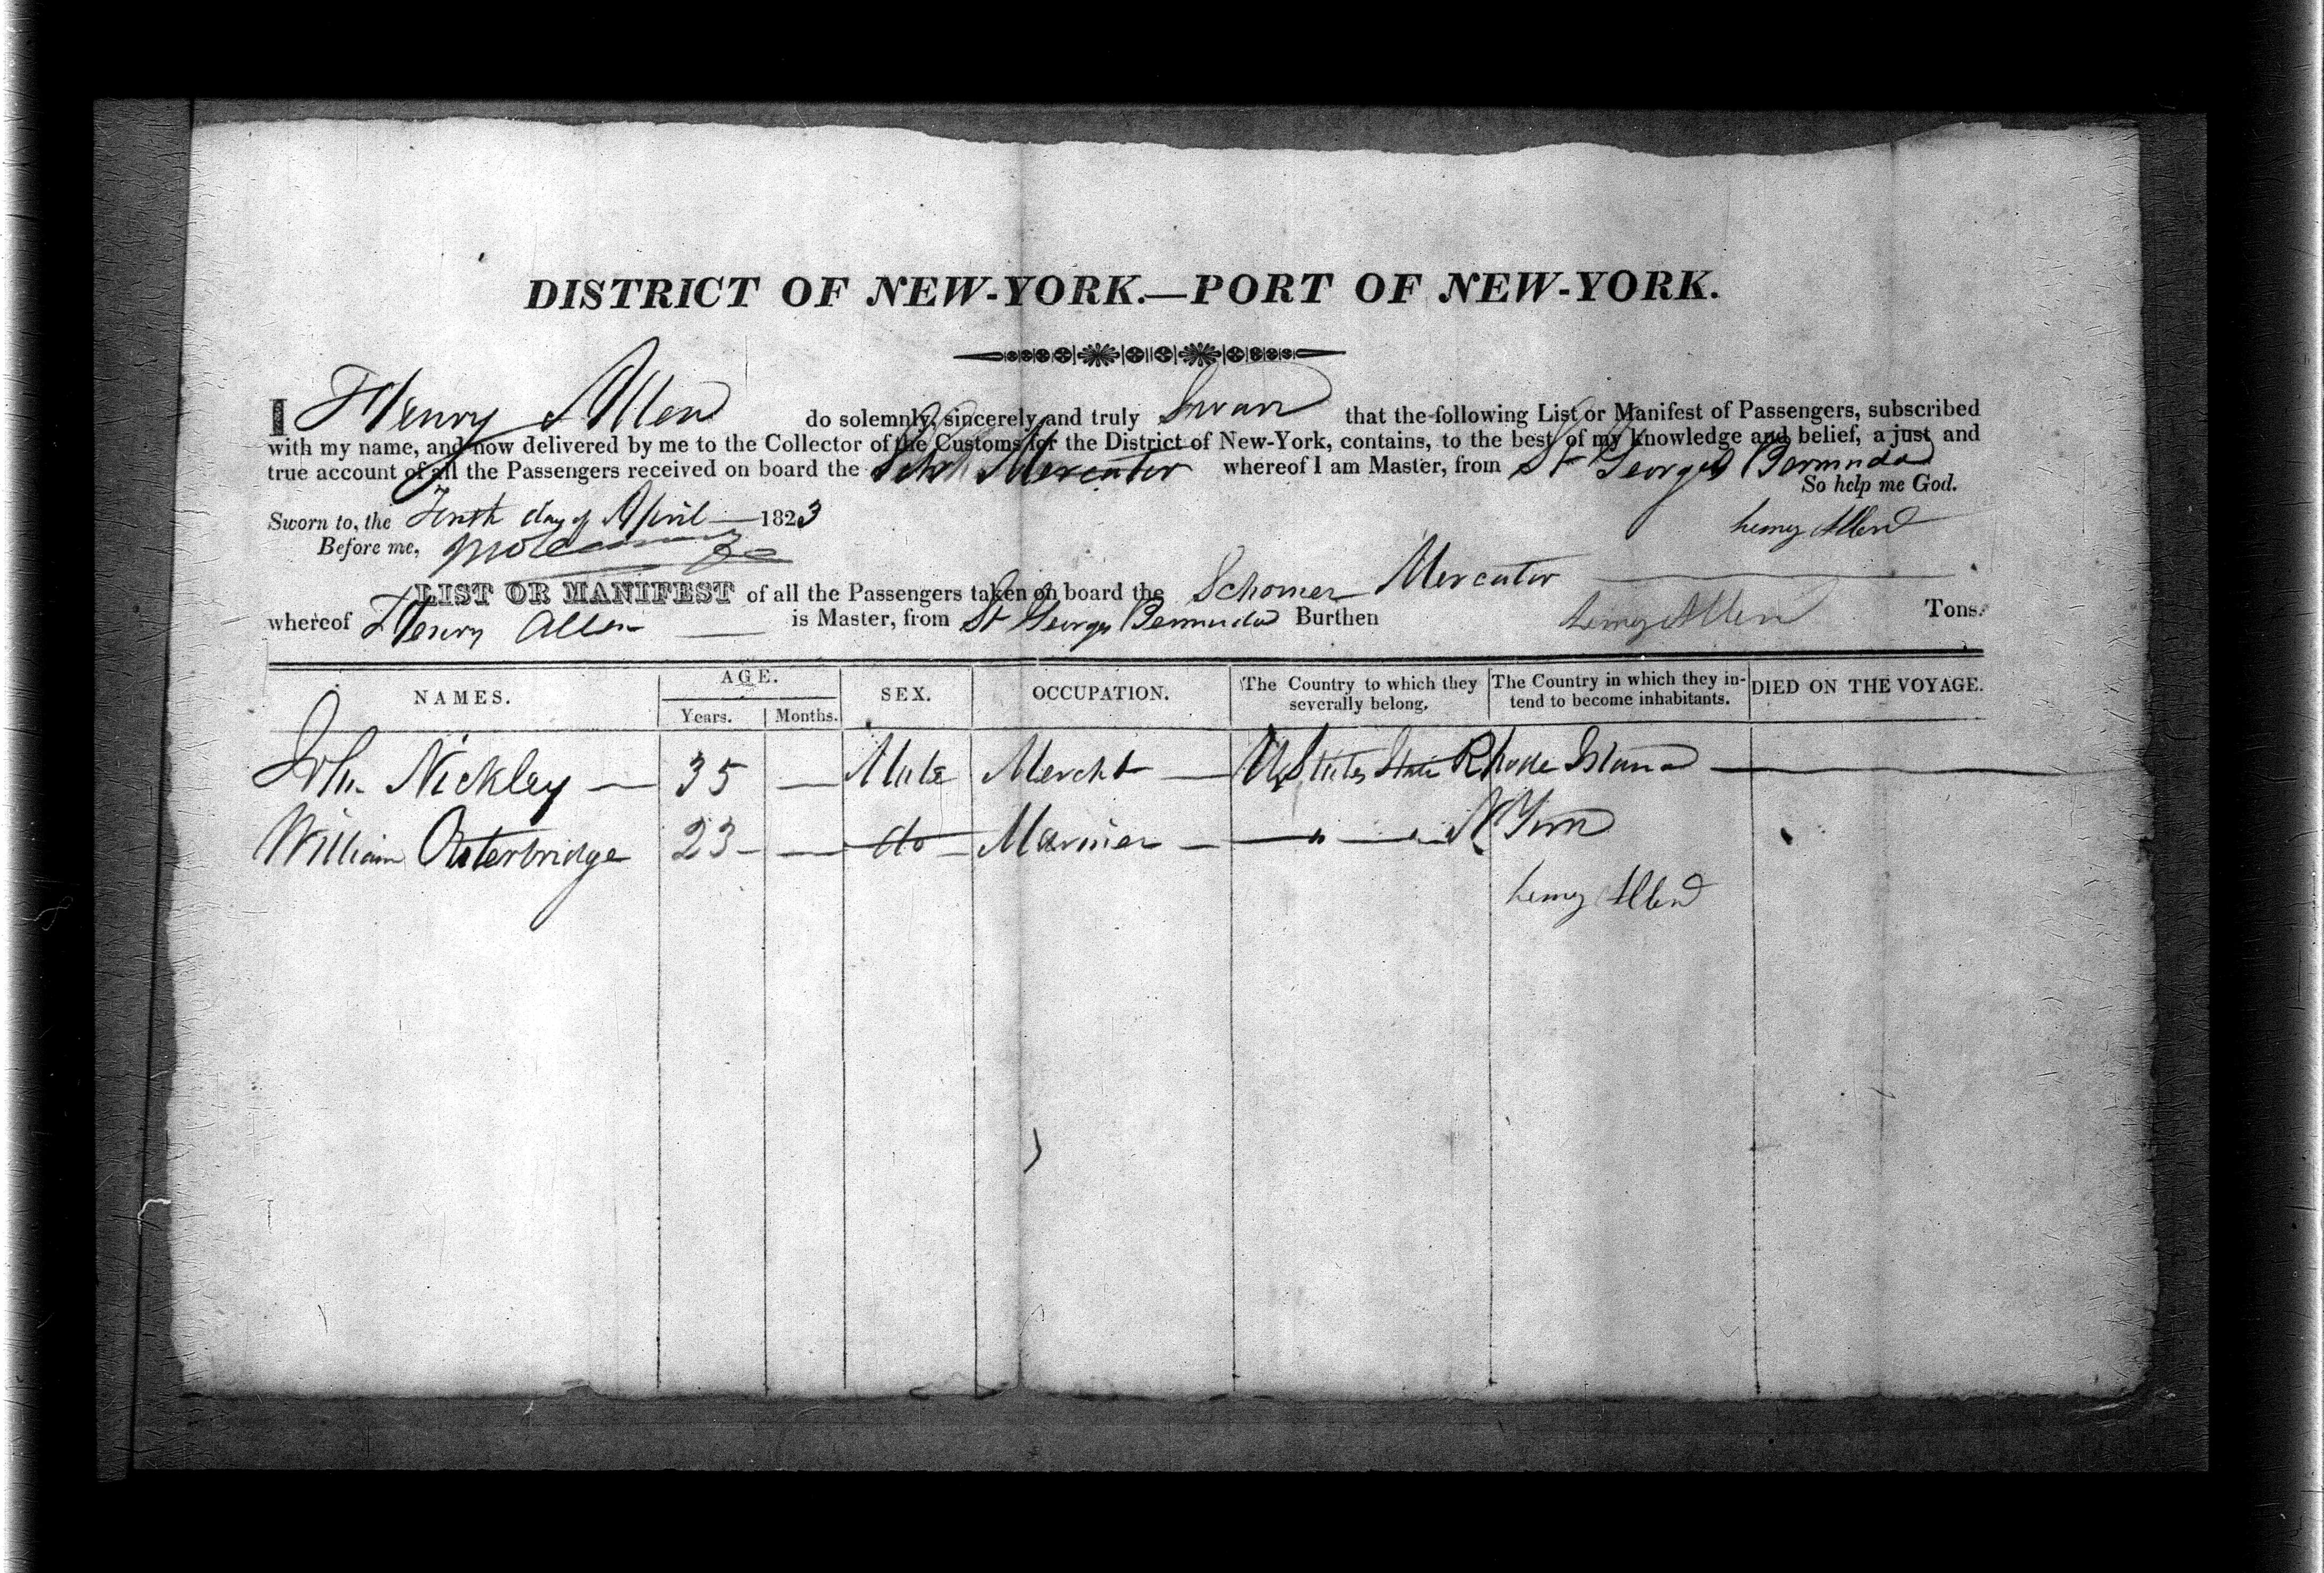 DISTRICT OF NEW-YORK.—PORT OF NEW-YORK.
I Henry Allen do solemnly, sincerely and truly Swear that the following List or Manifest of Passengers, subscribed
with my name, and now delivered by me to the Collector of the Customs for the District of New-York, contains, to the best of my knowledge and belief, a just and
true account of all the Passengers received on board the Schr Mercator whereof I am Master, from St Georges Bermuda
So help me God.
Sworn to, the Tenth day of April — 1823 henry Allen
Before me,
LIST OR MANIFEST of all the Passengers taken on board the Schooner Mercator
whereof Henry Allen — is Master, from St Georges Bermuda Burthen henry Allen Tons.
NAMES. AGE. SEX. OCCUPATION. The Country to which they severally belong. The Country in which they intend to become inhabitants. DIED ON THE VOYAGE.
Years. Months.
John Nickley — 35 — Male Mercht — U States State Rhode Island —
William Outerbridge 23 — — do — Mariner — — " — N York
henry Allen